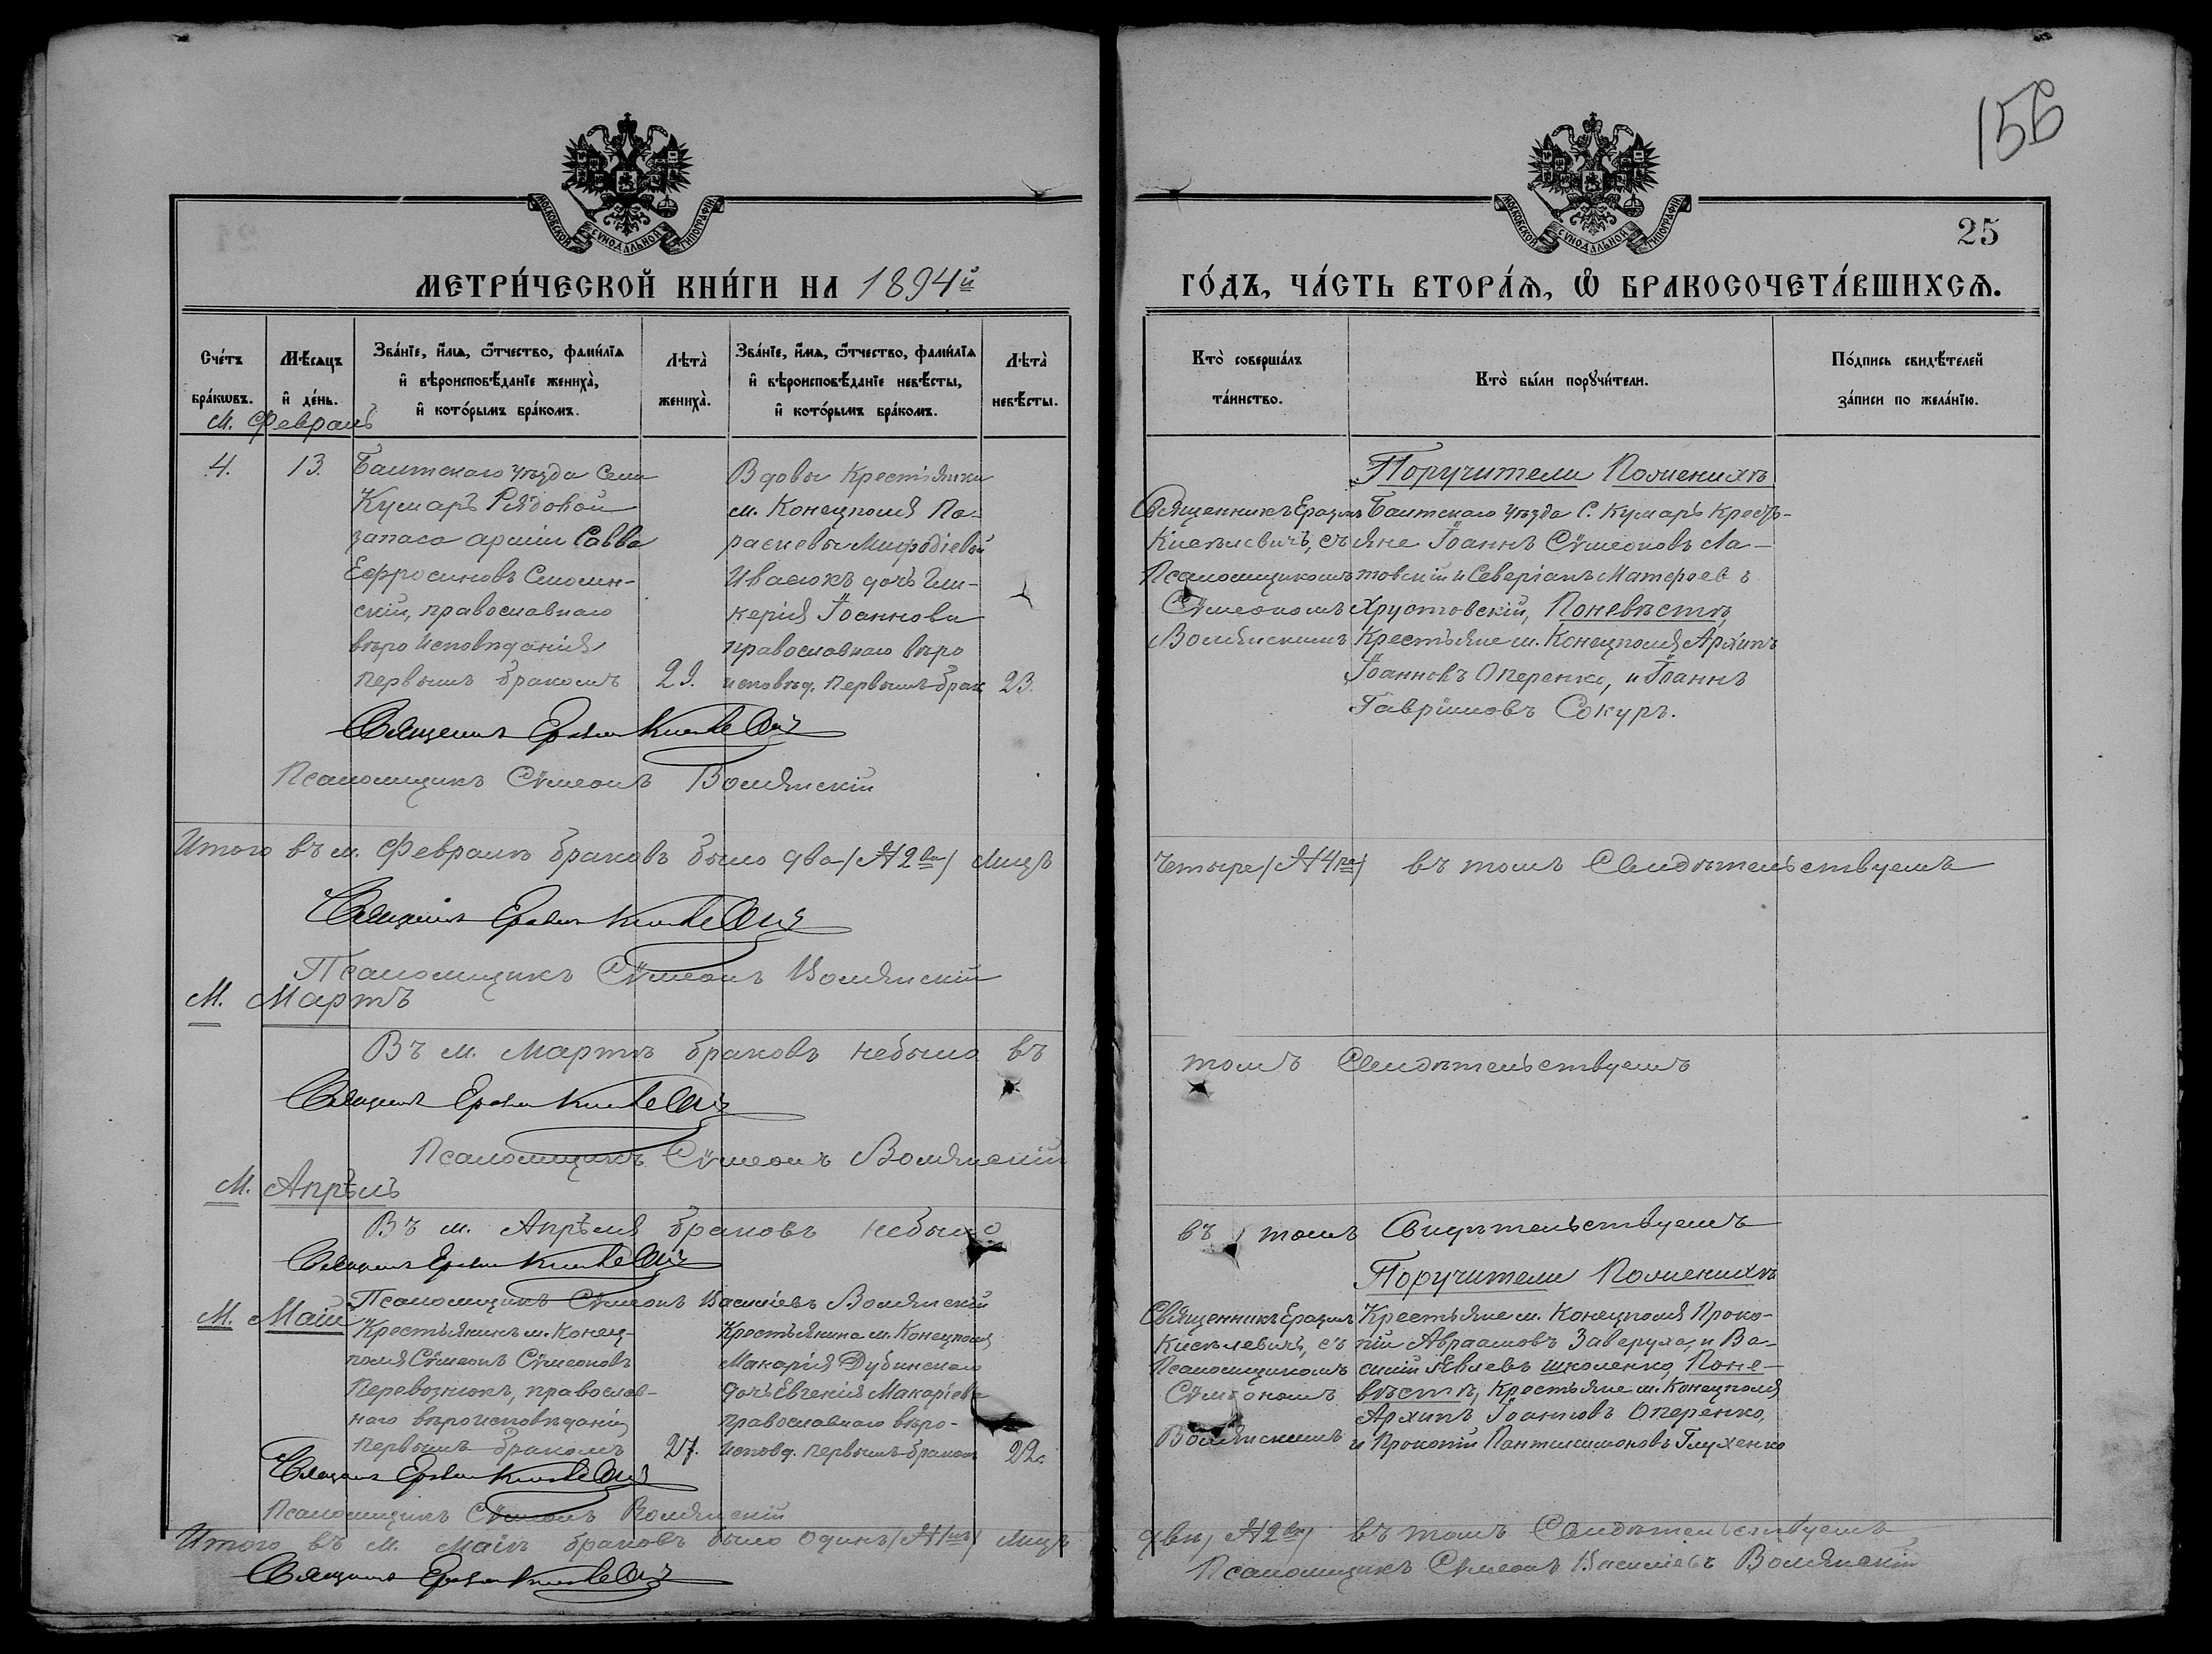 156
МОСКОВСКОЙ СУНОДАЛЬНОЙ ТИПОГРАФІИ
МОСКОВСКОЙ СУНОДАЛЬНОЙ ТИПОГРАФІИ
25
МЕТРИ́ЧЕСКОЙ КНИ́ГИ НА 1894й
ГО́ДЪ, ЧА́СТЬ ВТОРА́Ѧ, Ѡ҆ БРАКОСОЧЕТА́ВШИХСѦ.
Сче́тъ бра́кωвъ.
Мѣ́сѧцъ и҆ де́нь.
Зва́нїе, и҆́мѧ, ѻ҆́тчество, фами́лїѧ
и҆ вѣроисповѣ́данїе жениха̀,
и҆ кото́рымъ бра́комъ.
Лѣта̀ жениха̀.
Зва́нїе, и҆́мѧ, ѻ҆́тчество, фами́лїѧ
и҆ вѣроисповѣ́данїе невѣ́сты,
и҆ кото́рымъ бра́комъ.
Лѣта̀ невѣ́сты.
Кто̀ соверша́лъ та́инство.
Кто̀ бы́ли порꙋчи́тели.
По́дпись свидѣ́телей за́писи по жела́нїю.
М. Февраль
4.
13.
Балтскаго уѣзда Села
Кумаръ Рядовой
запаса арміи Савва
Ефросиновъ Смолин-
скій, православнаго
вѣроисповѣданія
первымъ бракомъ
29.
Вдовы Крестьянки
м. Конецполя Па-
раскевы Мифодіевой
Ивасюкъ дочь Гли-
керія Іоаннова
православнаго вѣро
исповѣд. первымъ брак
23.
Поручители По женихѣ
Священникъ Еразмъ
Киселевичъ, съ
Псаломщикомъ
Сѵмеономъ
Волянскимъ
Балтскаго уѣзда С. Кумаръ Кресть-
яне Іоаннъ Сѵмеоновъ Ла-
товскій и Северіанъ Матфеевъ
Хрустовскій, По невѣстѣ,
Крестьяне м. Конецполя Архипъ
Іоанновъ Оперенко, и Іоаннъ
Гавріиловъ Сокуръ.
Священникъ Еразмъ Киселевичъ
Псаломщикъ Сѵмеонъ Волянскій
Итого въ м. Февралѣ браковъ было два (№ 2ва) лицъ
четыре (№ 4ре) въ томъ Свидѣтельствуемъ
Священникъ Еразмъ Киселевичъ
Псаломщикъ Сѵмеонъ Волянскій
М. Мартъ
Въ м. Мартѣ браковъ небыло въ
томъ Свидѣтельствуемъ
Священникъ Еразмъ Киселевичъ
Псаломщикъ Сѵмеонъ Волянскій
М. Апрѣль
Въ м. Апрѣлѣ браковъ небыло
въ томъ Свидѣтельствуемъ
Священникъ Еразмъ Киселевичъ
Псаломщикъ Сѵмеонъ Василіевъ Волянскій
М. Май
Крестьянинъ м. Конец-
поля Сѵмеонъ Сѵмеоновъ
Перевознюкъ, православ-
наго вѣроисповѣданія
первымъ бракомъ
27.
Крестьянина м. Конецполя
Макарія Дубинскаго
дочь Евгенія Макаріева
православнаго вѣро-
исповѣд. первымъ бракомъ
22.
Поручители По женихѣ
Священникъ Еразмъ
Киселевичъ, съ
Псаломщикомъ
Сѵмеономъ
Волянскимъ
Крестьяне м. Конецполя Проко-
пій Авраамовъ Заверуха, и Ва-
силій Іовлевъ Школенко, По не-
вѣстѣ, Крестьяне м. Конецполя
Архипъ Іоанновъ Оперенко,
и Прокопій Пантилимоновъ Глухенко
Священникъ Еразмъ Киселевичъ
Псаломщикъ Сѵмеонъ Волянскій
Итого въ м. Маѣ браковъ было одинъ (№ 1нъ) лицъ
двѣ (№ 2вѣ) въ томъ Свидѣтельствуемъ
Священникъ Еразмъ Киселевичъ
Псаломщикъ Сѵмеонъ Василіевъ Волянскій